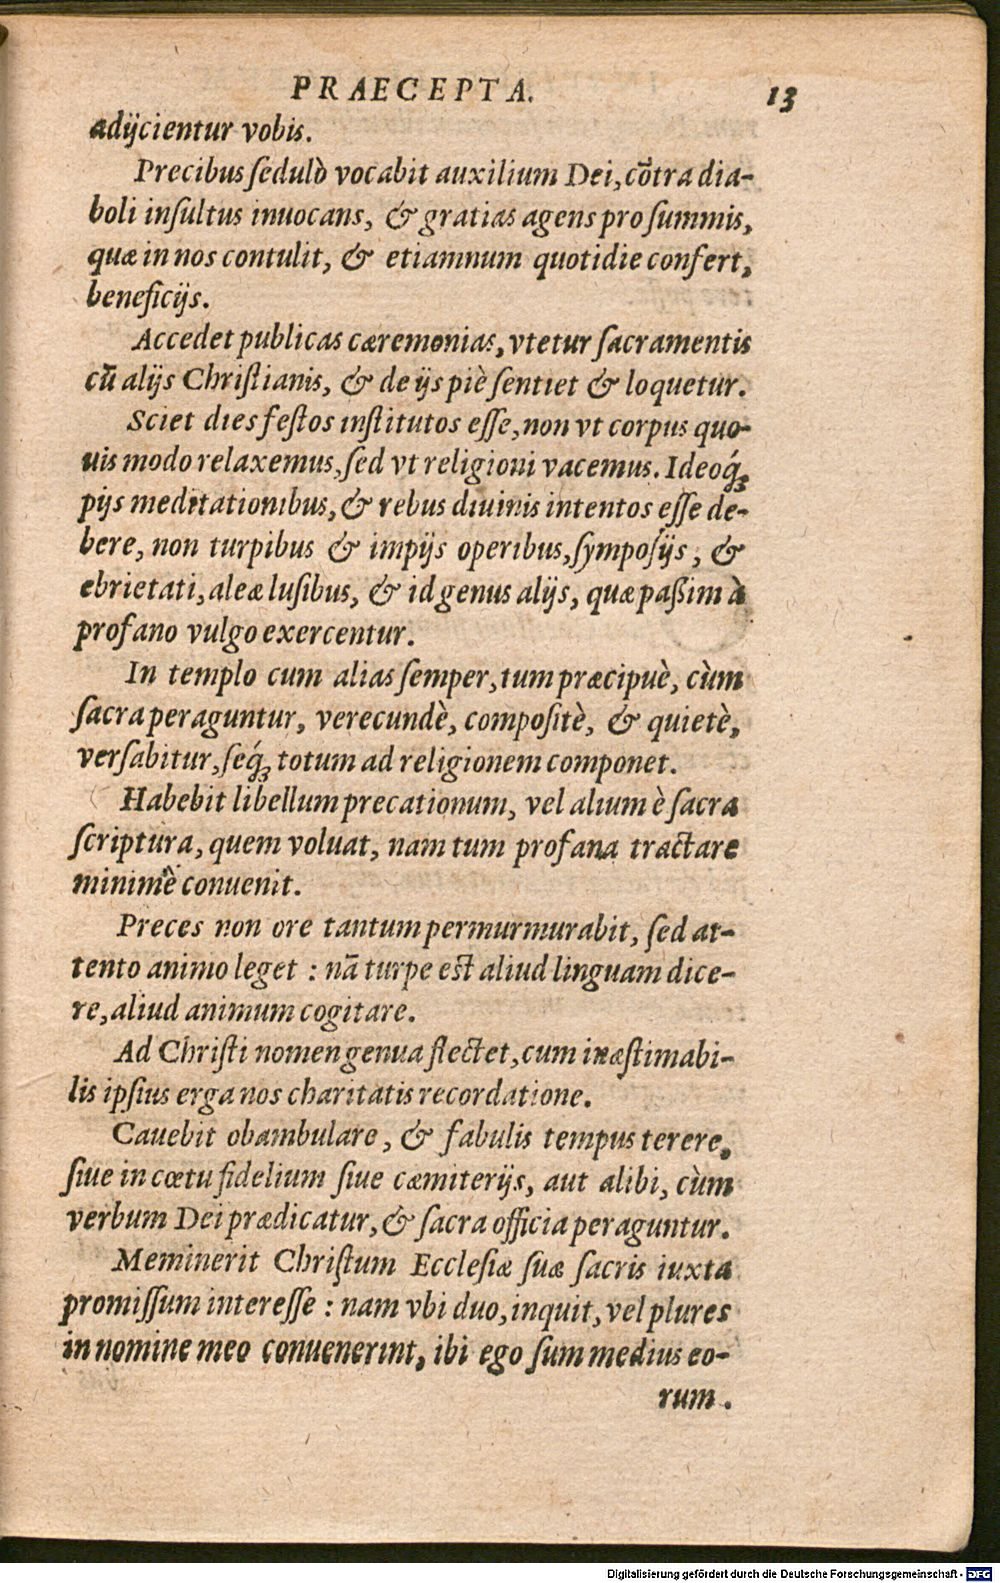 PRAECEPTA. 13
adijcientur vobis.
Precibus ſedulò vocabit auxilium Dei, cõtra dia-
boli inſultus inuocans, & gratias agens pro ſummis,
quæ in nos contulit, & etiamnum quotidie confert,
beneficijs.
Accedet publicas cæremonias, vtetur ſacramentis
cũ alijs Chriſtianis, & de ijs piè ſentiet & loquetur.
Sciet dies feſtos inſtitutos eſſe, non vt corpus quo-
uis modo relaxemus, ſed vt religioni vacemus. Ideoq́;
pijs meditationibus, & rebus diuinis intentos eſſe de-
bere, non turpibus & impijs operibus, ſympoſijs, &
ebrietati, aleæ luſibus, & id genus alijs, quæ paßim à
profano vulgo exercentur.
In templo cum alias ſemper, tum præcipuè, cùm
ſacra peraguntur, verecundè, compoſitè, & quietè,
verſabitur, ſeq́; totum ad religionem componet.
Habebit libellum precationum, vel alium è ſacra
ſcriptura, quem voluat, nam tum profana tractare
minimè conuenit.
Preces non ore tantum permurmurabit, ſed at-
tento animo leget : nã turpe eſt aliud linguam dice-
re, aliud animum cogitare.
Ad Chriſti nomen genua flectet, cum inæſtimabi-
lis ipſius erga nos charitatis recordatione.
Cauebit obambulare, & fabulis tempus terere,
ſiue in cœtu fidelium ſiue cæmiterijs, aut alibi, cùm
verbum Dei prædicatur, & ſacra officia peraguntur.
Meminerit Chriſtum Eccleſiæ ſuæ ſacris iuxta
promiſſum intereſſe : nam vbi duo, inquit, vel plures
in nomine meo conuenerint, ibi ego ſum medius eo-
rum.
Digitalisierung gefördert durch die Deutsche Forschungsgemeinschaft - DFG